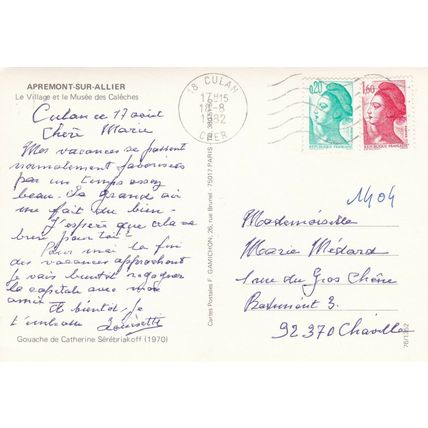 APREMONT-SUR-ALLIER
Le Village et le Musée des Calèches
Culan ce 17 août
Chère Marie
Mes vacances se passent
normalement favorisées
par un temps assez
beau. Le grand air
me fait du bien.
J'espère que cela va
bien pour toi.
Pour moi la fin
des vacances approchant
je vais bientôt regagner
la capitale avec mon
amie. A bientôt, je
t'embrasse Louisette
Gouache de Catherine Sérébriakoff (1970)
Cartes Postales F. GAMICHON, 26, rue Brunel - 75017 PARIS
18 CULAN
17H15
18-8
1982
CHER
0,20
REPUBLIQUE FRANÇAISE
1,60
REPUBLIQUE FRANÇAISE
1404
Mademoiselle
Marie Médard
1 rue du Gros Chêne
Batiment 3.
92370 Chaville